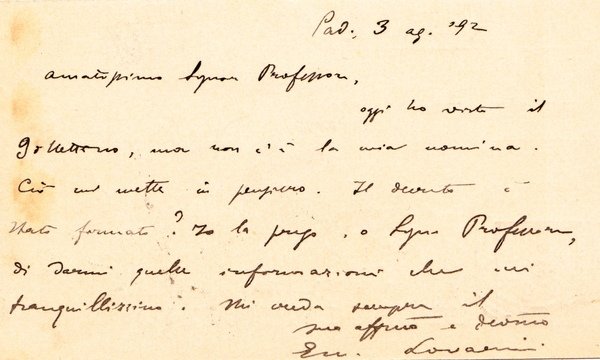 Pad., 3 ag. '92
Amatissimo Signor Professore,
oggi ho visto il
Bollettino, ma non c'è la mia nomina.
Ciò mi mette in pensiero. Il decreto è
stato firmato? Io la prego, o Signor Professore,
di darmi quelle informazioni che mi
tranquillizzino. Mi creda sempre il
suo affmo e devmo
Em. Lovarini